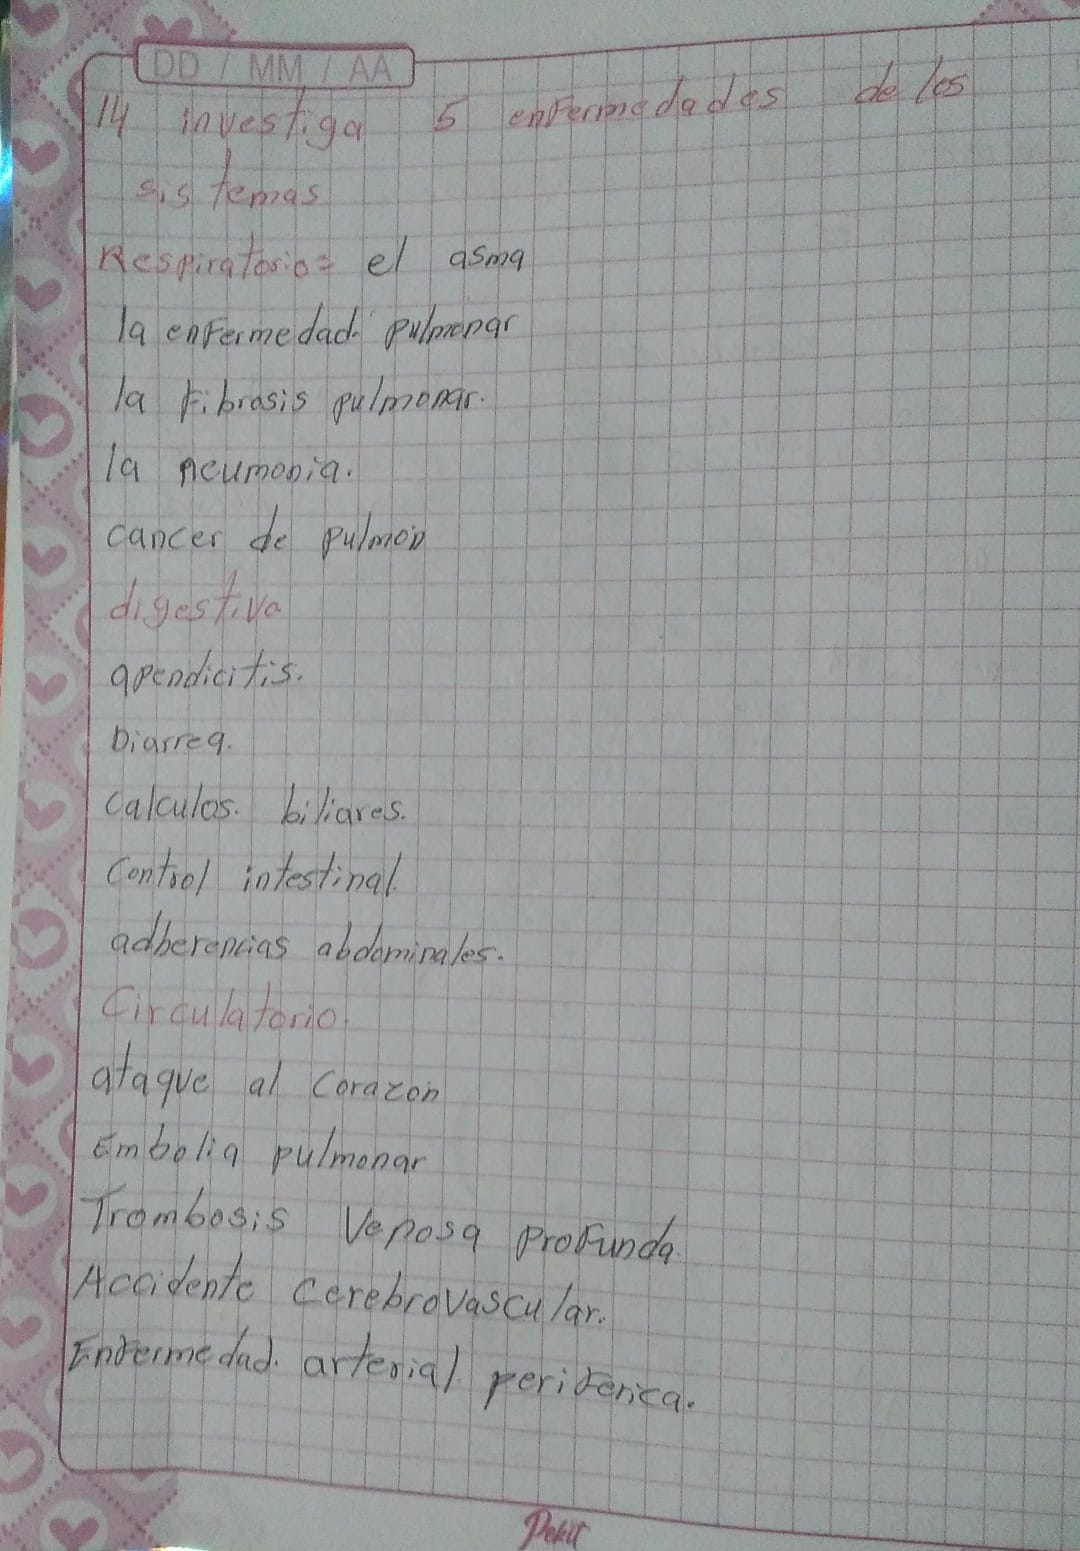 DD / MM / AA
14 investiga 5 enfermedades de los
sistemas
Respiratorio= el asma
la enfermedad. pulmonar
la fibrosis pulmonar.
la neumonia.
cancer de pulmon
digestivo
apendicitis.
Diarrea.
calculos. biliares.
Control intestinal.
adherencias abdominales.
Circulatorio.
ataque al Corazon
Embolia pulmonar
Trombosis Venosa Profunda.
Accidente Cerebrovascular.
Enfermedad. arterial. periferica.
Pekit